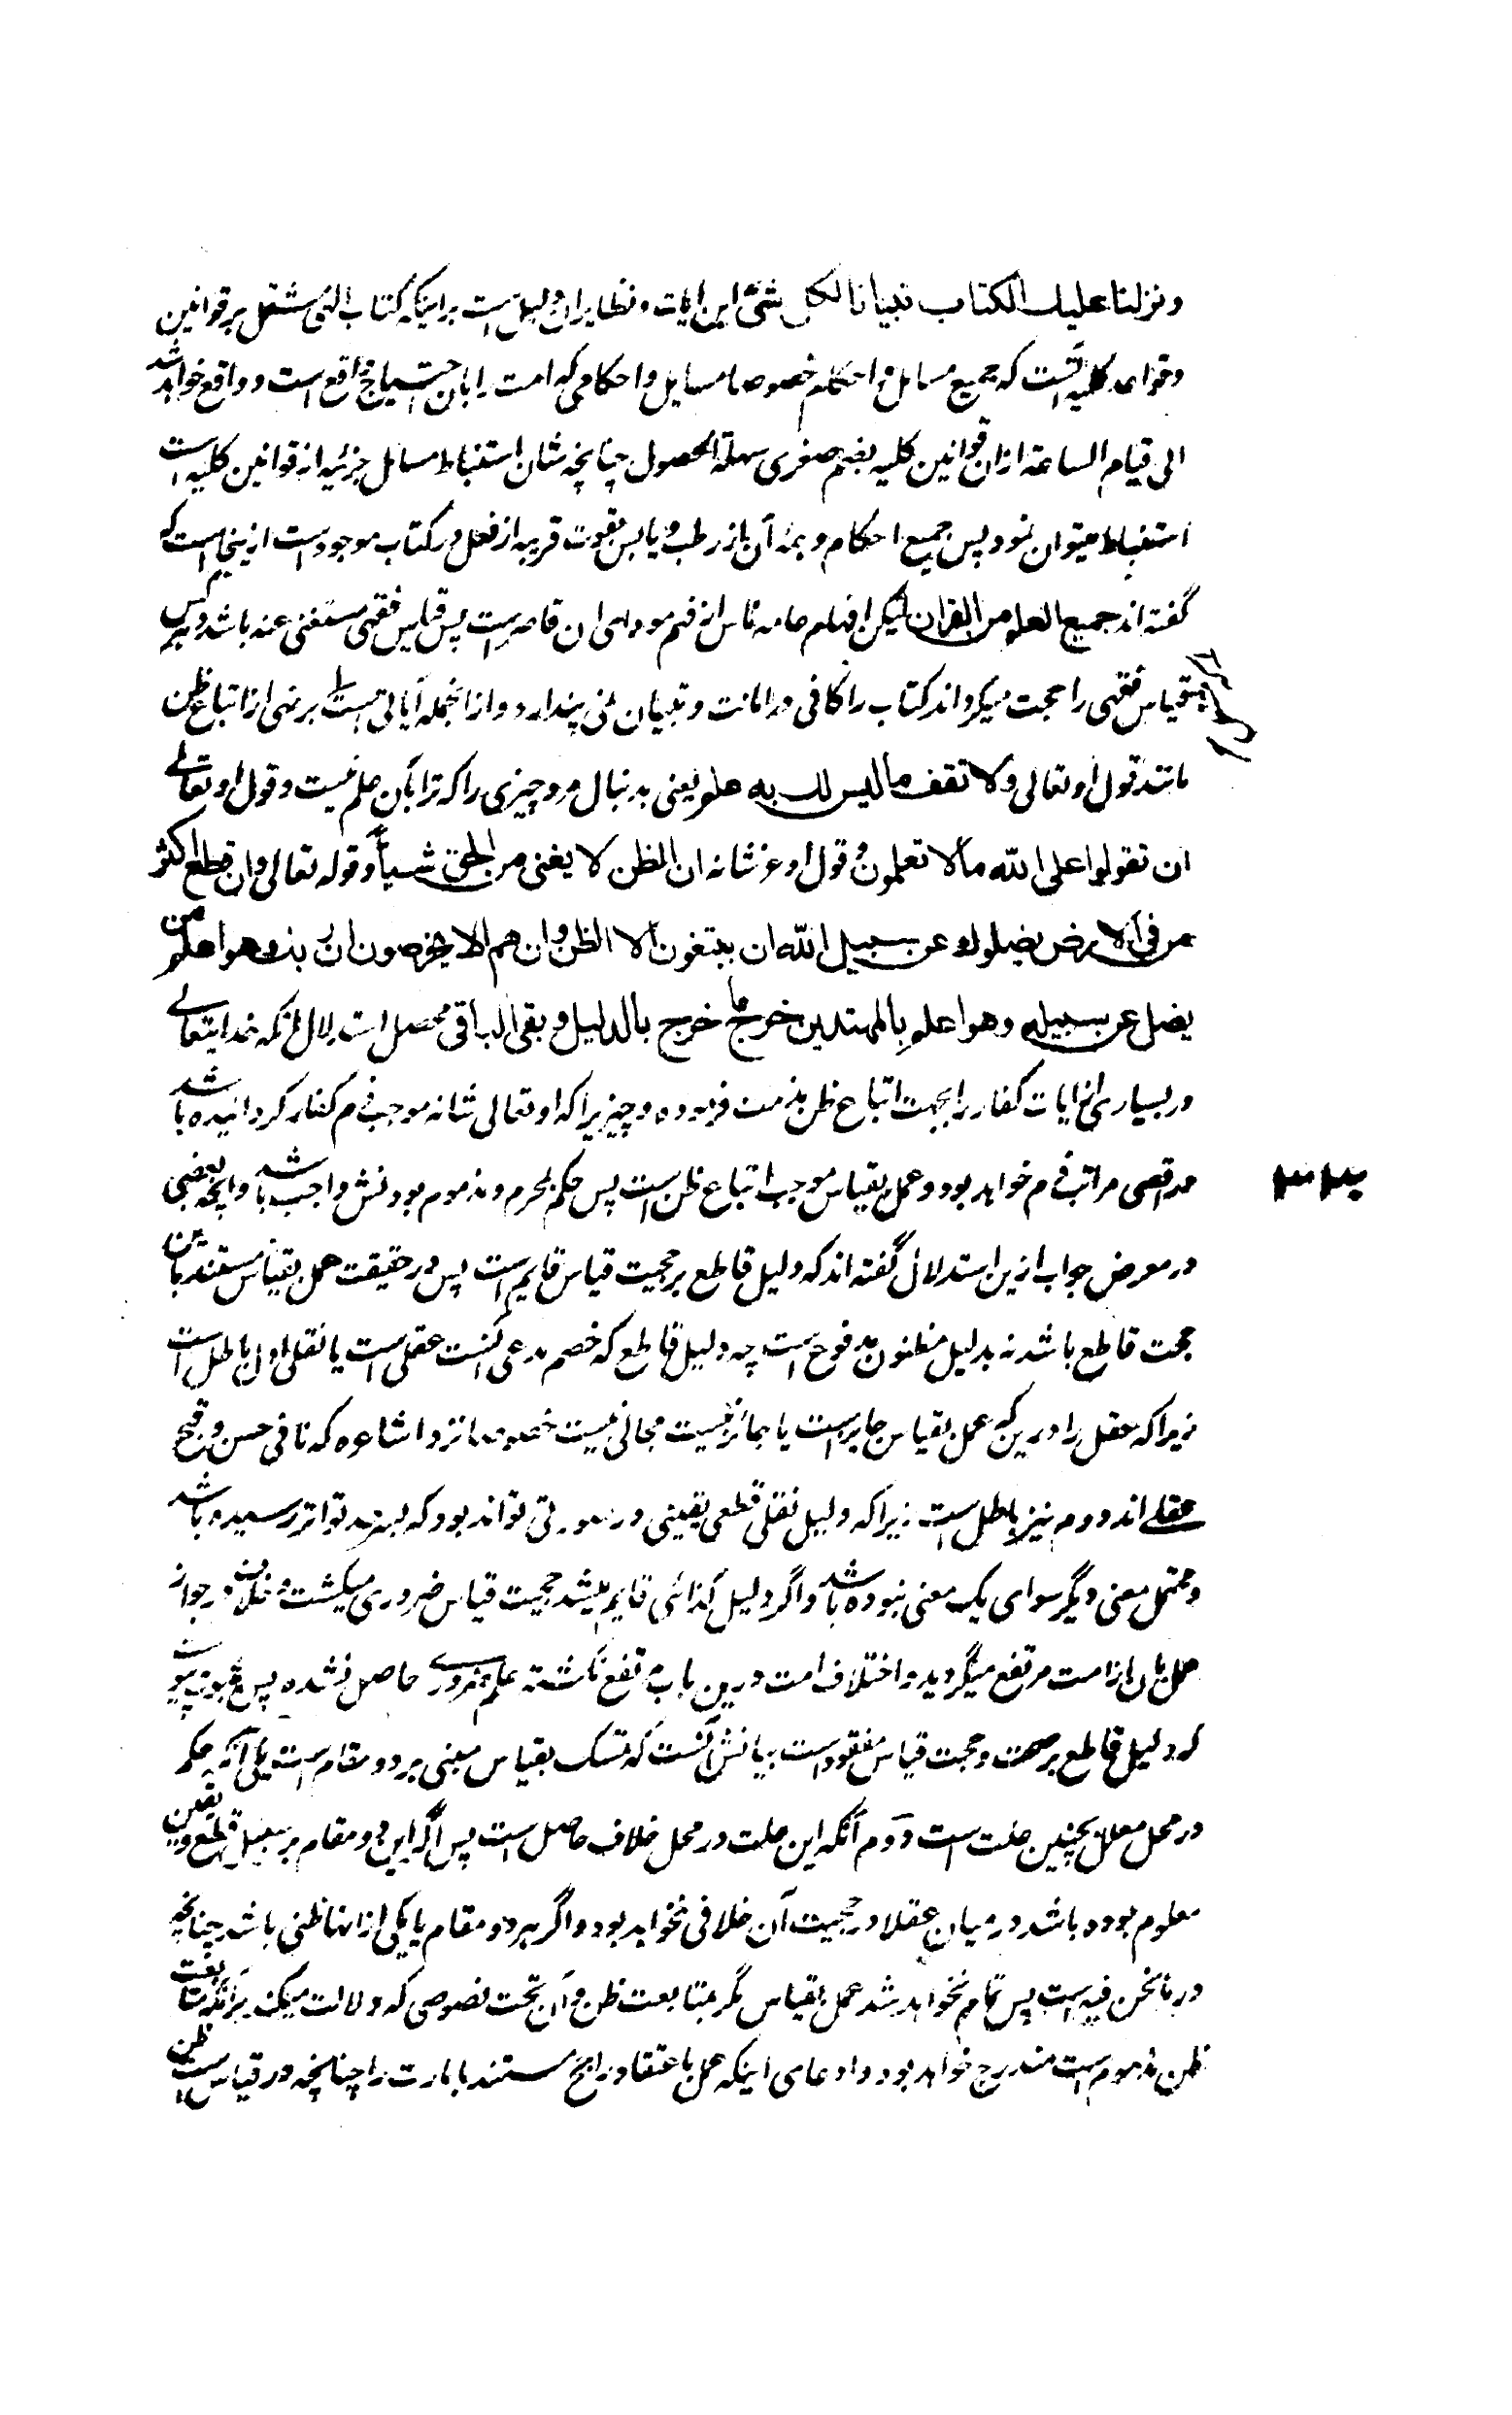 ونزلنا علیک الکتاب تبیانا لکل شئ این ایات و نظایر ان دلیل است برانیکه کتاب الهی مشتمل بر قوانین
و قواعد کلیه است که جمیع مسائل و احکام خصوصا مسایل و احکامی که امت را بان احتیاج واقع است و واقع خواهد شد
الی قیام الساعة ازان قوانین کلیه بضم صغری سهلة الحصول چنانچه شان استنباط مسائل جزئیه از قوانین کلیه است
استنباط میتوان نمود پس جمیع احکام و همه آن از رطب و یابس بقوت قریبه از فعل در کتاب موجود است ازینجاست که
گفته اند جمیع العلم من القران لیکن افهام عامه ناس از فهم مودای ان قاصر است پس قیاس فقهی مستغنی عنه باشد و هرکس
قیاس فقهی را حجت میکرداند کتاب را کافی در ابانت و تبیان نمی پندارد و ازانجمله آیاتی است برنهی از اتباع ظن
مانند قول او تعالی ولا تقف ما لیس لک به علم یعنی بدنبال مرو چیزی را که ترا بآن علم نیست و قول او تعالے
ان تقولوا علی الله ما لا تعلمون و قول او عز شانه ان الظن لا یغنی من الحق شیئاً و قوله تعالی وان تطع اکثر
من فی الارض یضلوك عن سبیل الله ان یتبعون الا الظن وان هم الا یخرصون ان ربك هو اعلم من
یضل عن سبیله وهو اعلم بالمهتدین خرج ما خرج بالدلیل و بقی الباقی محصل استدلال آنکه خدایتعالے
در بسیاری از ایات کفار را بجهت اتباع ظن مذمت فرموده و چیزیرا که او تعالی شانه موجب ذم کفار کردانیده باشد
در اقصی مراتب ذم خواهد بود و عمل بقیاس موجب اتباع ظن است پس حکم بمحرم و مذموم بودنش واجب باشد و انچه بعضی
در معرض جواب ازین استدلال گفته اند که دلیل قاطع بر حجیت قیاس قایم است پس در حقیقت عمل بقیاس مستند بآن
حجت قاطع باشد نه بدلیل مظنون مدفوع است چه دلیل قاطع که خصم مدعی آنست عقلی است یا نقلی اول باطل است
زیرا که عقل را درین که عمل بقیاس جایز است یا جائز نیست مجالی نیست خصوصا نزد اشاعره که نافی حسن و قبح
عقلے اند و دوم نیز باطل است زیرا که دلیل نقلی قطعی یقینی در صورتی تواند بود که بسرحد تواتر رسیده باشد
و محتمل معنی دیگر سوای یک معنی نبوده باشد و اگر دلیل کذائی قایم میشد حجیت قیاس ضروری میگشت و خلاف در جواز
عمل بان از امت مرتفع میگردید و اختلاف امت درین باب مرتفع نگشته علم ضروری حاصل نشده پس بثبوت پیوست
که دلیل قاطع بر صحت و حجت قیاس مفقود است بیانش آنست که تمسک بقیاس مبنی بر دو مقام است یکی آنکه حکم
در محل معلل بچنین علت است دوم آنکه این علت در محل خلاف حاصل است پس اگر این دو مقام بر سبیل قطع و یقین
معلوم بوده باشد در میان عقلا در حجیت آن خلافی نخواهد بود و اگر هر دو مقام یا یکی ازانها ظنی باشد چنانچه
در ما نحن فیه است پس تمام نخواهد شد عمل بقیاس مگر بمتابعت ظن و آن تحت نصوصی که دلالت میکند بر آنکه متابعت
ظن مذموم است مندرج خواهد بود و ادعای اینکه عمل باعتقاد راجح مستند بامارت را چنانچه در قیاس است ظن